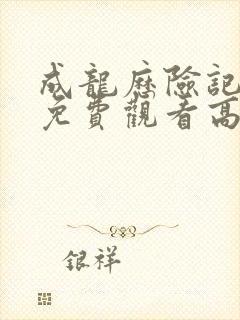 成龍歷險記
免費觀看高
銀祥